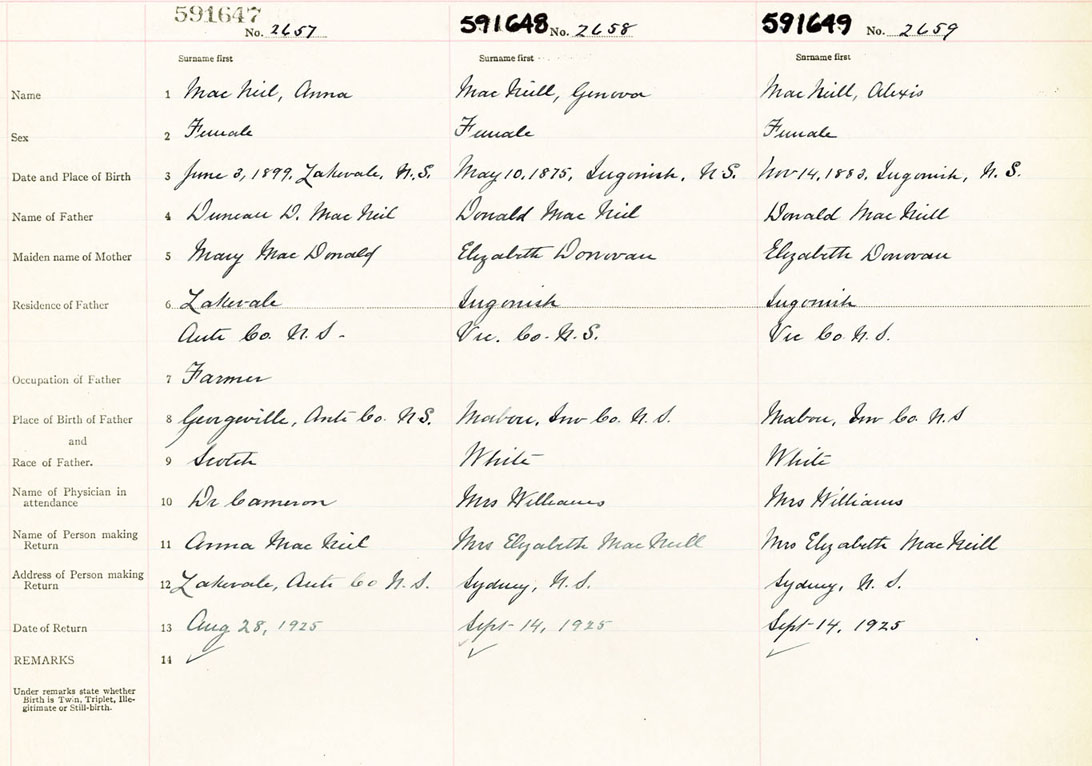 591647 No. 2657 591648 No. 2658 591649 No. 2659
Surname first Surname first Surname first
Name 1 Mac Neil, Anna Mac Neill, Genova Mac Neill, Alexis
Sex 2 Female Female Female
Date and Place of Birth 3 June 3, 1899, Lakevale, N.S. May 10, 1875, Ingonish, N.S. Nov 14, 1883, Ingonish, N.S.
Name of Father 4 Duncan D. Mac Neil Donald Mac Neil Donald Mac Neill
Maiden name of Mother 5 Mary Mac Donald Elizabeth Donovan Elizabeth Donovan
Residence of Father 6 Lakevale Ingonish Ingonish
Anti Co. N.S- Vic. Co. N.S. Vic Co. N.S.
Occupation of Father 7 Farmer
Place of Birth of Father 8 Georgeville, Anti Co. N.S. Mabou, Inv Co. N.S. Mabou, Inv Co. N.S
and
Race of Father. 9 Scotch White White
Name of Physician in
attendance 10 Dr Cameron Mrs Williams Mrs Williams
Name of Person making
Return 11 Anna Mac Neil Mrs Elizabeth Mac Neill Mrs Elizabeth Mac Neill
Address of Person making
Return 12 Lakevale, Anti Co N.S. Sydney, N.S. Sydney, N.S.
Date of Return 13 Aug 28, 1925 Sept-14, 1925 Sept-14, 1925
REMARKS 14
Under remarks state whether
Birth is Twin, Triplet, Ille-
gitimate or Still-birth.